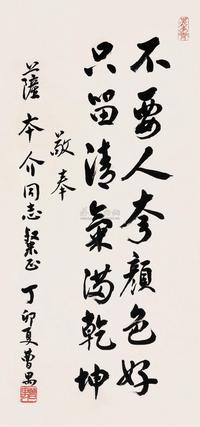 不要人夸颜色好
只留清氣满乾坤
敬奉
萨本介同志粲正 丁卯夏曹禺